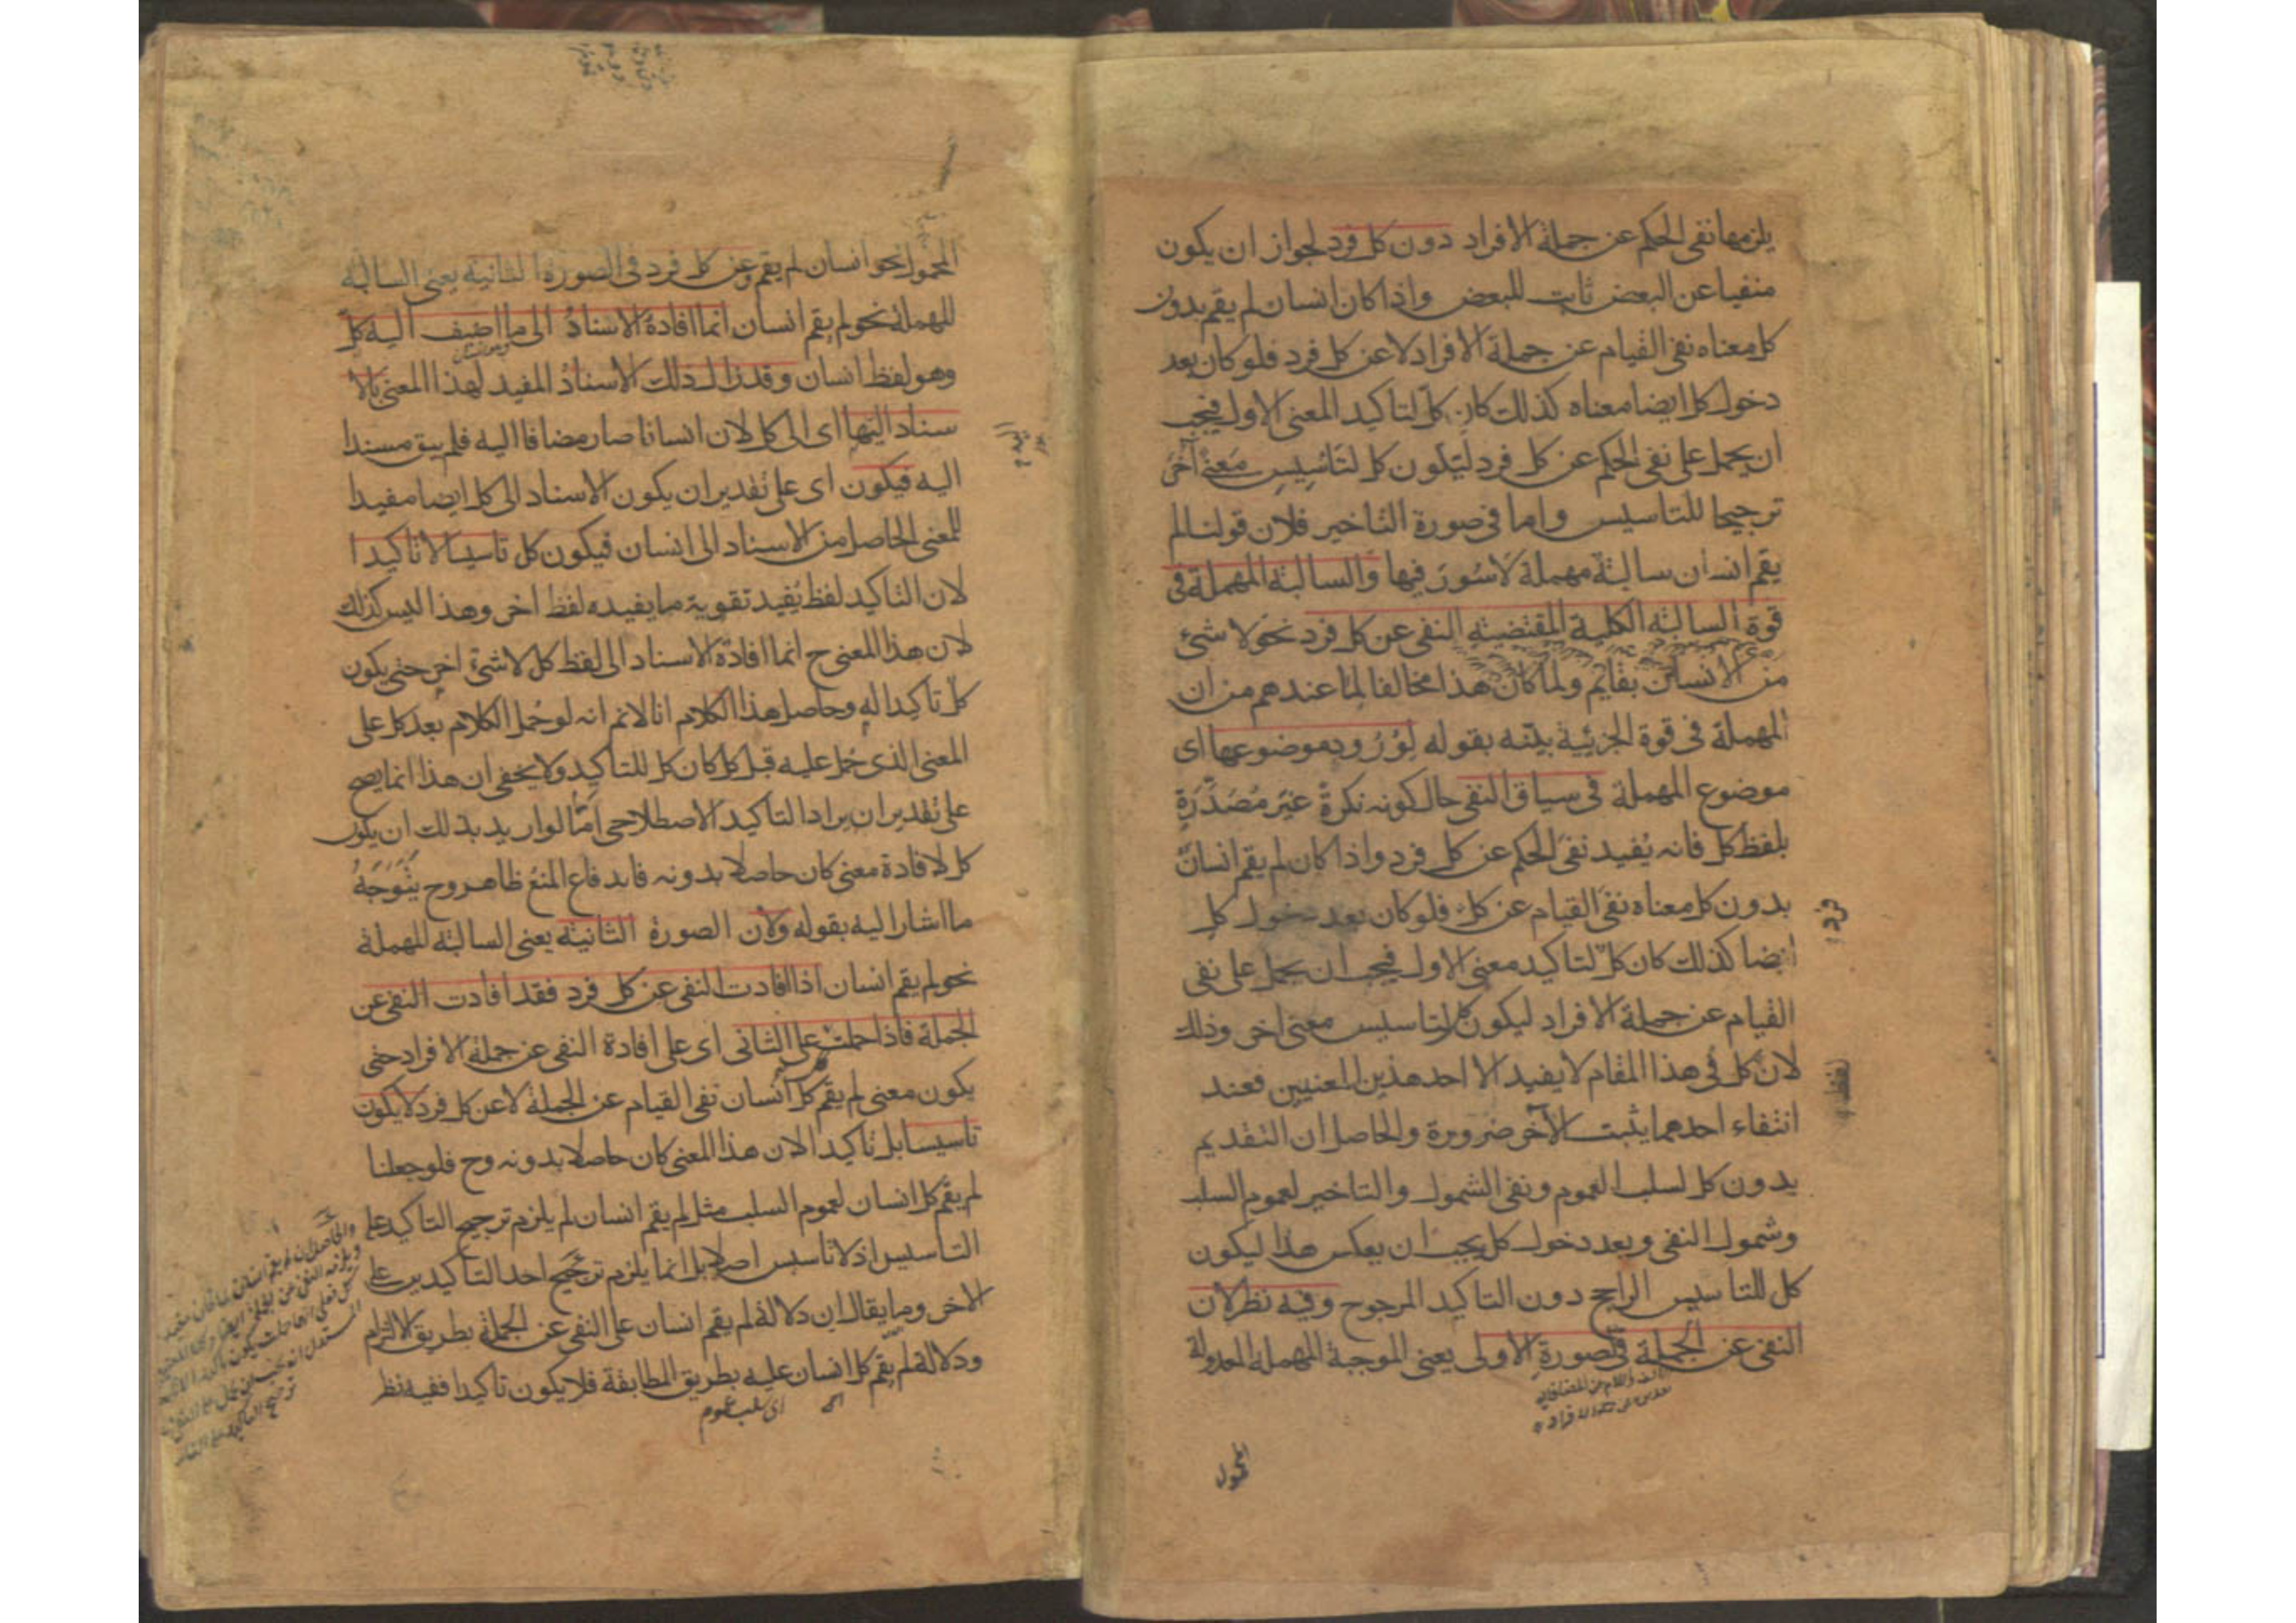 يلزمها نفى الحكم عن جملة الافراد دون كل فرد لجواز ان يكون
منفيا عن البعض ثابت للبعض واذا كان انسان لم يقم بدون
كل معناه نفى القيام عن جملة الافراد لا عن كل فرد فلو كان بعد
دخول كل ايضا معناه كذلك كان كل لتاكيد المعنى الاول فيجب
ان يحمل على نفى الحكم عن كل فرد ليكون كل لتاسيس معنى آخر
ترجيحا للتاسيس واما فى صورة التاخير فلان قولنا لم
يقم انسان سالبة مهملة لا سور فيها والسالبة المهملة فى
قوة السالبة الكلية المقتضية النفى عن كل فرد نحو لا شئ
من الانسان بقايم ولما كان هذا مخالفا لما عندهم من ان
المهملة فى قوة الجزئية بينه بقوله لورود موضوعها اى
موضوع المهملة فى سياق النفى حال كونه نكرة غير مصدرة
بلفظ كل فانه يفيد نفى الحكم عن كل فرد واذا كان لم يقم انسان
بدون كل معناه نفى القيام عن كل فلو كان بعد دخول كل
فرد
ايضا كذلك كان كل لتاكيد معنى الاول فيجب ان يحمل على نفى
القيام عن جملة الافراد ليكون كل لتاسيس معنى اخر وذلك
لان كل فى هذا المقام لا يفيد الا احد هذين المعنيين فعند
لفظ
انتفاء احدهما يثبت الآخر ضرورة والحاصل ان التقديم
بدون كل لسلب العموم ونفى الشمول والتاخير لعموم السلب
وشمول النفى وبعد دخول كل يجب ان يعكس هذا ليكون
كل للتاسيس الراجح دون التاكيد المرجوح وفيه نظر لان
النفى عن الجملة فى الصورة الاولى يعنى الموجبة المهملة المعدولة
المحمول
المحمول نحو انسان لم يقم وعن كل فرد فى الصورة الثانية يعنى السالبة
المهملة نحو لم يقم انسان انما افادة الاسناد الى ما اضيف اليه كل
وهو لفظ انسان وقد زال ذلك الاسناد المفيد لهذا المعنى بالا
سناد اليها اى الى كل لان انسانا صار مضافا اليه فلم يبق مسندا
اليه فيكون اى على تقدير ان يكون الاسناد الى كل ايضا مفيدا
للمعنى الحاصل من الاسناد الى انسان فيكون كل تاسيسا لا تاكيدا
لان التاكيد لفظ يفيد تقوية ما يفيده لفظ اخر وهذا ليس كذلك
لان هذا المعنى ح انما افادة الاسناد الى لفظ كل لا شئ اخر حتى يكون
كل تاكيدا له وحاصل هذا الكلام انا لانم انه لو حمل الكلام بعد كل على
المعنى الذى حمل عليه قبل كل كان كل للتاكيد ولا يخفى ان هذا انما يصح
على تقدير ان يراد التاكيد الاصطلاحى اما لو اريد بذلك ان يكون
كل لافادة معنى كان حاصلا بدونه فاندفاع المنع ظاهر وح يتوجه
ما اشار اليه بقوله ولان الصورة الثانية يعنى السالبة المهملة
نحو لم يقم انسان اذا افادت النفى عن كل فرد فقد افادت النفى عن
الجملة فاذا حملت على الثانى اى على افادة النفى عن جملة الافراد حتى
يكون معنى لم يقم كل انسان نفى القيام عن الجملة لا عن كل فرد لا يكون
تاسيسا بل تاكيدا لان هذا المعنى كان حاصلا بدونه وح فلو جعلنا
لم يقم كل انسان لعموم السلب مثل لم يقم انسان لم يلزم ترجيح التاكيد على
التاسيس اذ لا تاسيس اصلا بل انما يلزم ترجيح احد التاكيدين على
الاخر وما يقال ان دلالة لم يقم انسان على النفى عن الجملة بطريق الالتزام
ودلالة لم يقم كل انسان عليه بطريق المطابقة فلا يكون تاكيدا ففيه نظر
اى سلب عموم